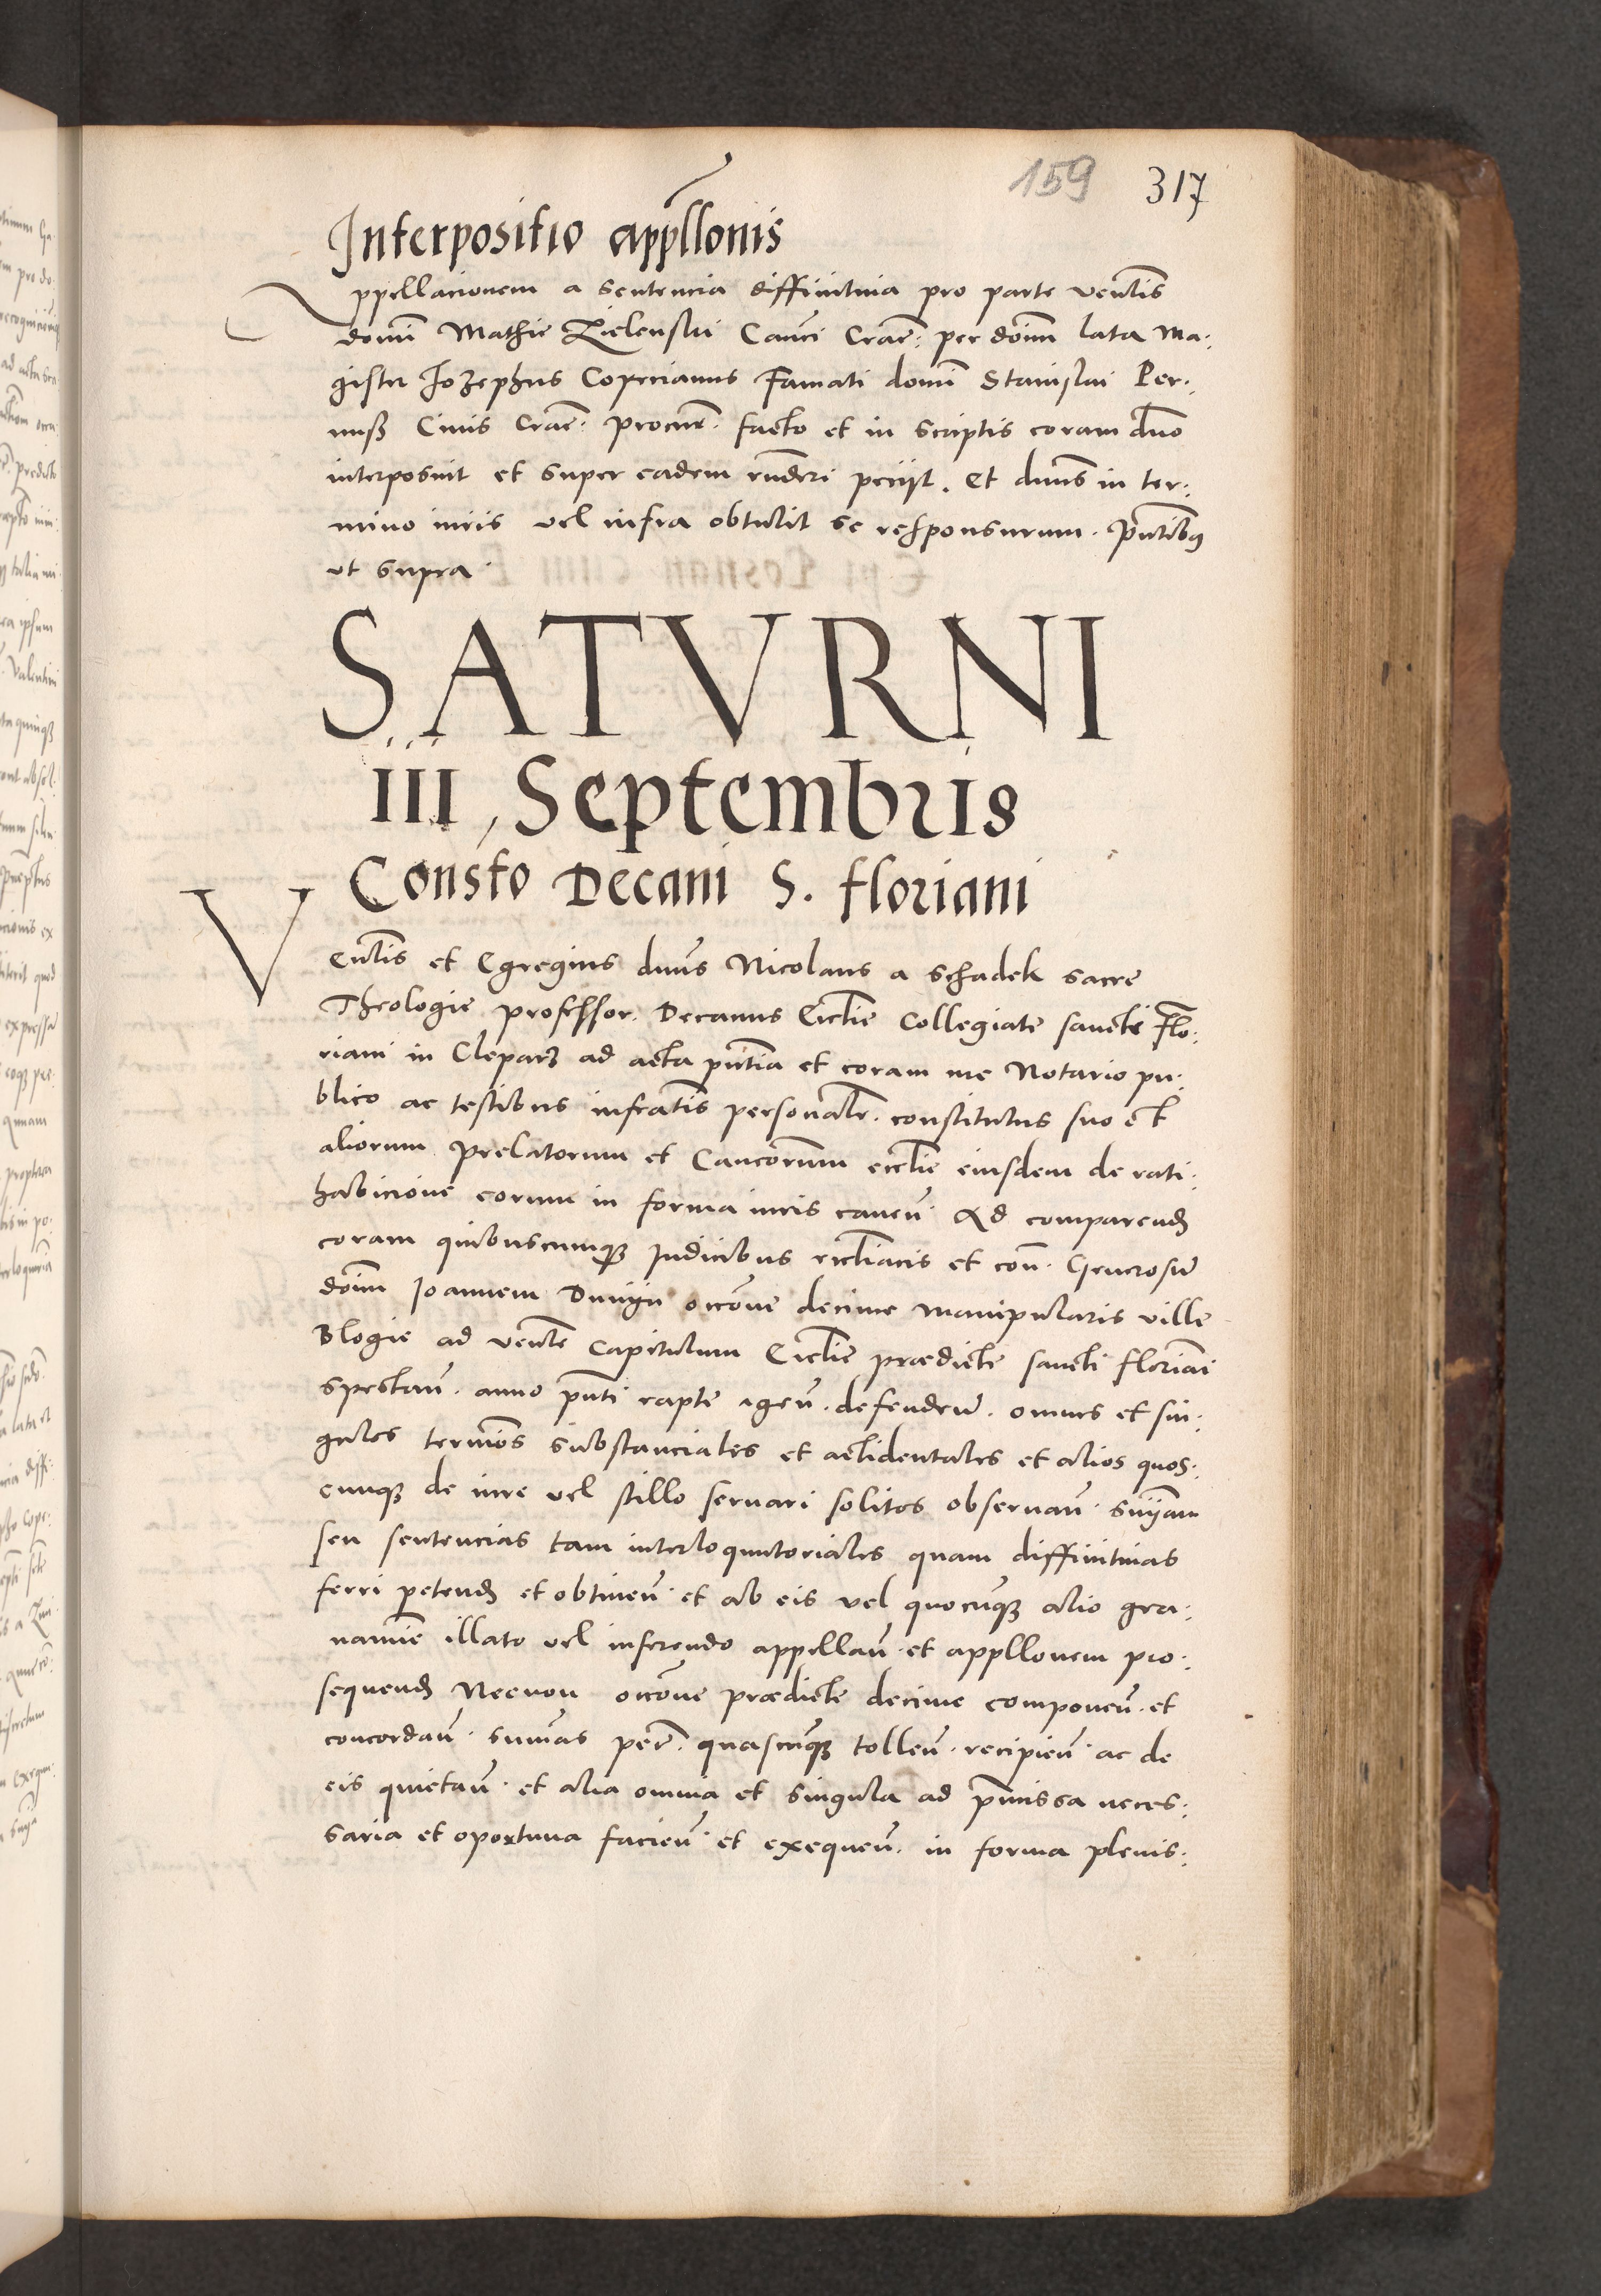 159 317
Interpositio appllonis
Appellacionem a sentencia diffinitiva pro parte Ventis
domi Mathie Zielenski Canci Crac: per doim lata Ma:
gister Jozephus Copecianus Famati domi Stanislai Per:
nuß Civis Crac: procur: facto et in scriptis coram duo
interposuit et super eadem rnderi peciit. et duns in ter:
mino iuris vel infra obtulit se responsurum. Pntibus
ut supra
SATVRNI
III, Septembris
Consto Decani S. Floriani
Ventis et Egregius duns Nicolaus a Schadek sacre
Theologie professor. Decanus Ecclie Collegiate sancti Flo:
riani in Cleparz ad acta pntia et coram me Notario pu:
blico ac testibus infratis personatr. constitutus suo et
aliorum Prelatorum et Cancorum ecclie eiusdem de rati:
habicione eorum in forma iuris caven. Ad comparend
coram quibuscumque Iudicibus eccliacis et con. Generosum
doim Joannem Duniin occone decime manipularis ville
Blogie ad vente Capitulum Ecclie prædicte sancti Floriani
spectan. anno pnti rapte agen. defenden. omnes et sin:
gulos termios substanciales et accidentales et alios quos:
cunque de iure vel stillo servari solitos observan. sniam
seu sentencias tam interloquutoriales quam diffinitivas
ferri petend et obtinen. et ab eis vel quocunque alio gra:
namie illato vel inferendo appellan. et appllonem pro:
sequend Necnon occone prædicte decime componen. et
concordan. sumas pecr. quascunque tollen. recipien. ac de
eis quietan. et alia omnia et singula ad pmissa neces:
saria et oportuna facien. et exequen. in forma plenis: